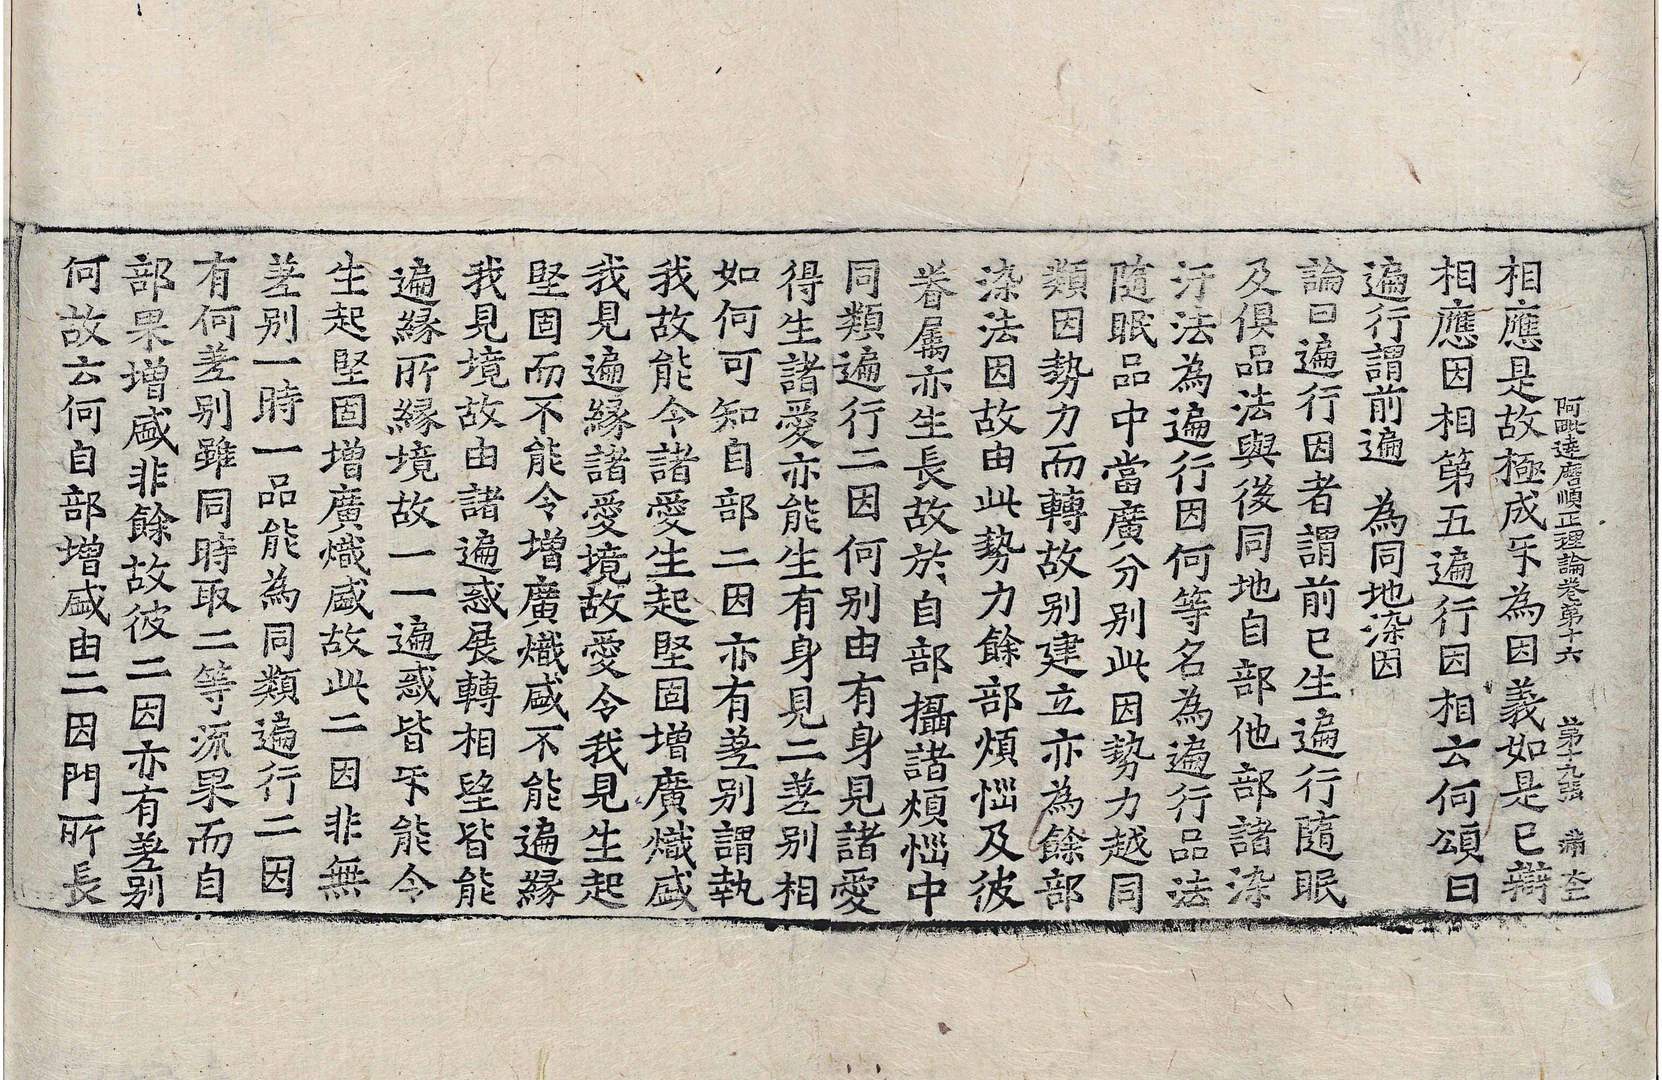 阿毗達磨順正理論卷第十六 第十九張
相應是故極成㸦為因義如是已辯
相應因相第五遍行因相云何頌曰
遍行謂前遍 為同地染因
論曰遍行因者謂前已生遍行隨眠
及俱品法與後同地自部他部諸染
汙法為遍行因何等名為遍行品法
隨眠品中當廣分別此因勢力越同
類因勢力而轉故別建立亦為餘部
染法因故由此勢力餘部煩惱及彼
眷屬亦生長故於自部攝諸煩惱中
同類遍行二因何別由有身見諸愛
得生諸愛亦能生有身見二差別相
如何可知自部二因亦有差別謂執
我故能令諸愛生起堅固增廣熾盛
我見遍緣諸愛境故愛令我見生起
堅固而不能令增廣熾盛不能遍緣
我見境故由諸遍惑展轉相望皆能
遍緣所緣境故一一遍惑皆㸦能令
生起堅固增廣熾盛故此二因非無
差別一時一品能為同類遍行二因
有何差別雖同時取二等流果而自
部果增盛非餘故彼二因亦有差別
何故云何自部增盛由二因門所長